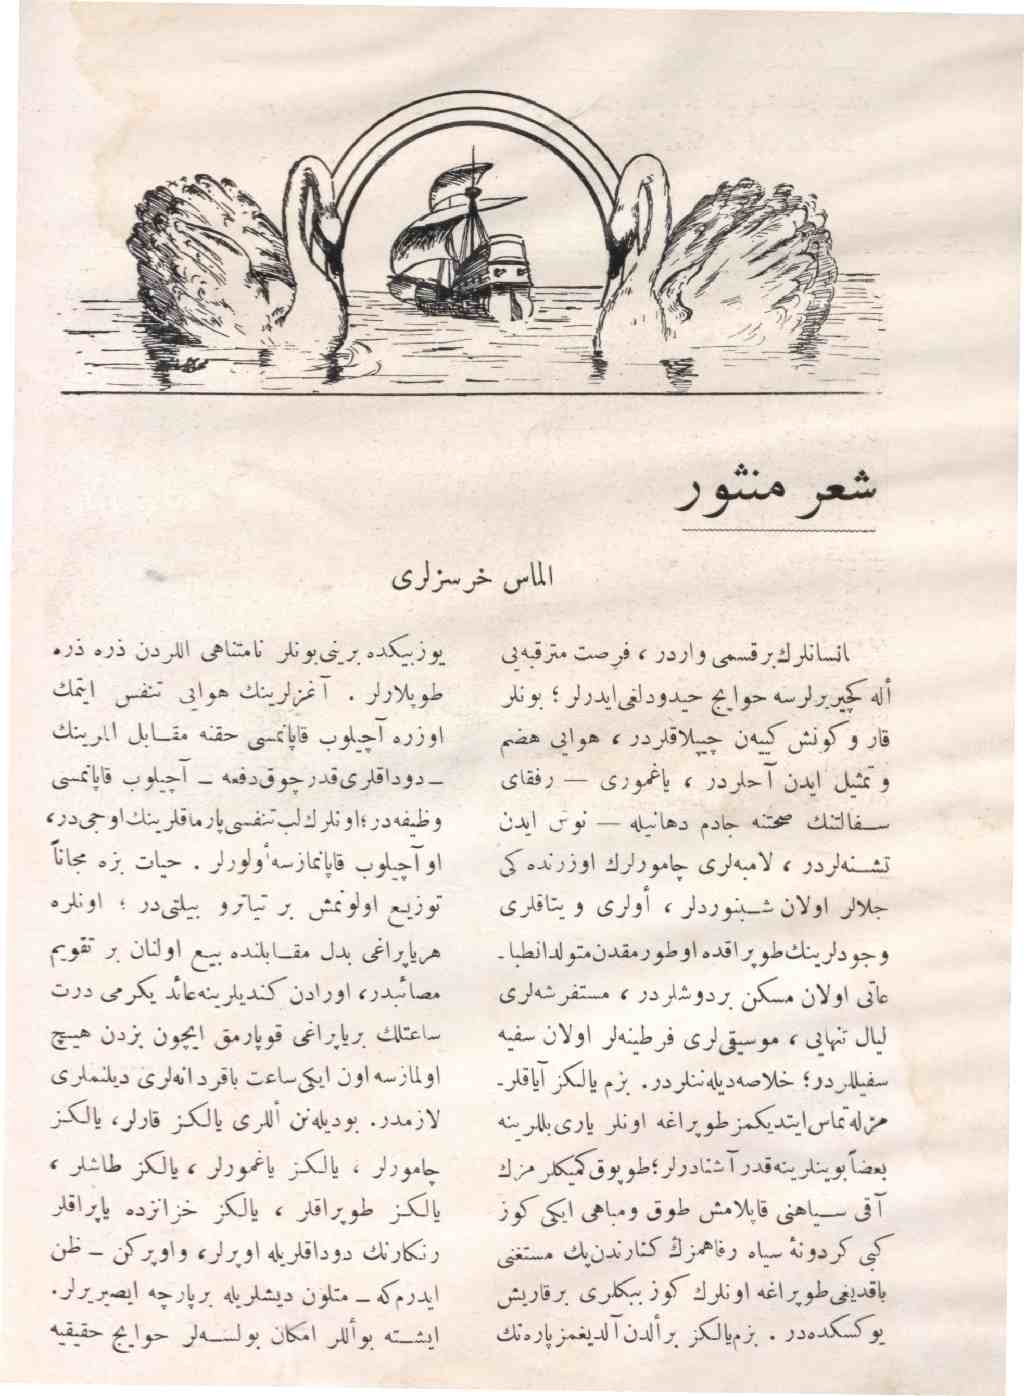 شعر منثور
الماس خرسزلرى
انسانلرك بر قسمى واردر ، فرصت مترقبه‌يى
أله كچيررلرسه حوايج حيدودلغى ايدرلر ؛ بونلر
قار و كونش كييه‌ن چيپلاقلردر ، هوايى هضم
و تمثيل ايدن آجلردر ، ياغمورى — رفقاى
سفالتنك صحتنه جادم دهانيله — نوش ايدن
تشنه‌لردر ، لامبه‌لرى چامورلرك اوزرنده كى
جلالر اولان شبنوردلر ، أولرى و يتاقلرى
وجودلرينك طوپراقده اوطورمقدن متولد انطبا-
عاتى اولان مسكن بردوشلردر ، مستفرشه‌لرى
ليال تنهايى ، موسيقى‌لرى فرطينه‌لر اولان سفيه
سفيللردر ؛ خلاصه ديله‌ننلردر . بزم يالكز آياقلر-
مزله تماس ايتديكمز طوپراغه اونلر يارى بللرينه
بعضاً بوينلرينه قدر آشنادرلر ؛ طوپوق كميكلرمزك
آقى سياهنى قاپلامش طوق ومباهى ايكى كوز
كبى كردونهٔ سياه رفاهمزك كنارندن پك مستغنى
باقديغى طوپراغه اونلرك كوز ببكلرى برقاريش
يوكسكده‌در . بزم يالكز بر ألدن آلديغمز پاره‌نك
يوزبيكده برينى بونلر نامتناهى اللردن ذره ذره
طوپلارلر . آغزلرينك هوايى تنفس ايتمك
اوزره آچيلوب قاپانمسى حقنه مقابل اللرينك
— دوداقلرى قدر چوق دفعه — آچيلوب قاپانمسى
وظيفه‌در ؛ اونلرك لب تنفسى پارماقلرينك اوجى‌در ،
او آچيلوب قاپانمازسه أولورلر . حيات بزه مجاناً
توزيع اولونمش بر تياترو بيلتى‌در ؛ اونلره
هرياپراغى بدل مقابلنده بيع اولنان بر تقويم
مصائبدر ، اورادن كنديلرينه عائد يكرمى درت
ساعتلك برياپراغى قوپارمق ايچون بزدن هيچ
اولمازسه اون ايكى ساعت باقردانه‌لرى ديلنملرى
لازمدر . بوديله‌نن أللرى يالكز قارلر ، يالكز
چامورلر ، يالكز ياغمورلر ، يالكز طاشلر ،
يالكز طوپراقلر ، يالكز خزانزده ياپراقلر
رنكارنك دوداقلريله اوپرلر ، واوپركن — ظن
ايدرم كه — متلون ديشلريله برپارچه ايصيريرلر .
ايشته بوأللر امكان بولسه‌لر حوايج حقيقيه